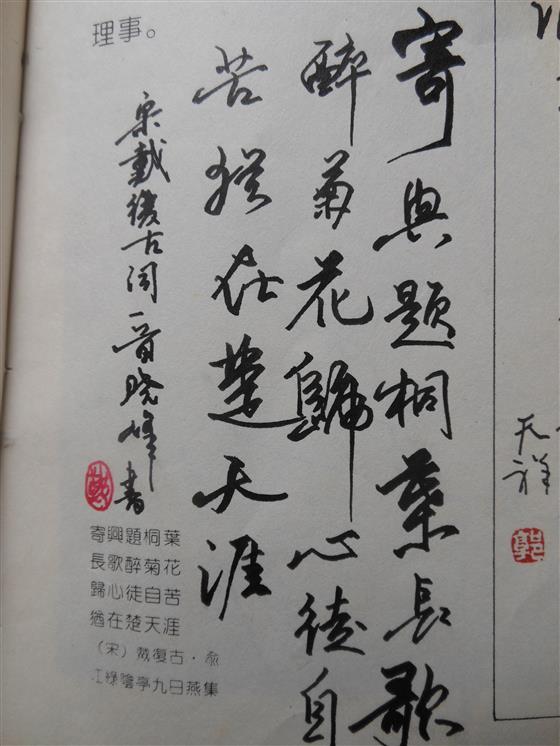 寄興題桐葉長歌
醉菊花歸心徒自
苦猶在楚天涯
宋戴復古 一首晓峰書
戴
理事。
寄興題桐葉
長歌醉菊花
歸心徒自苦
猶在楚天涯
（宋）戴復古·渝
江綠陰亭九日燕集
天祥
郭